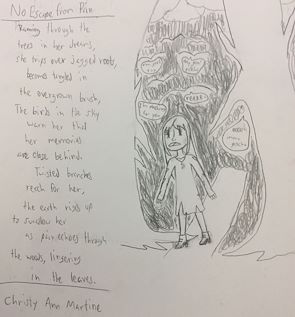 No Escape from Pain
Running through the
trees in her dreams,
she trips over jagged roots,
becomes tangled in
the overgrown brush,
The birds in the sky
warn her that
her memories
are close behind.
Twisted branches
reach for her,
the earth rises up
to swallow her
as pain echoes through
the woods, lingering
in the leaves.
Christy Ann Martine